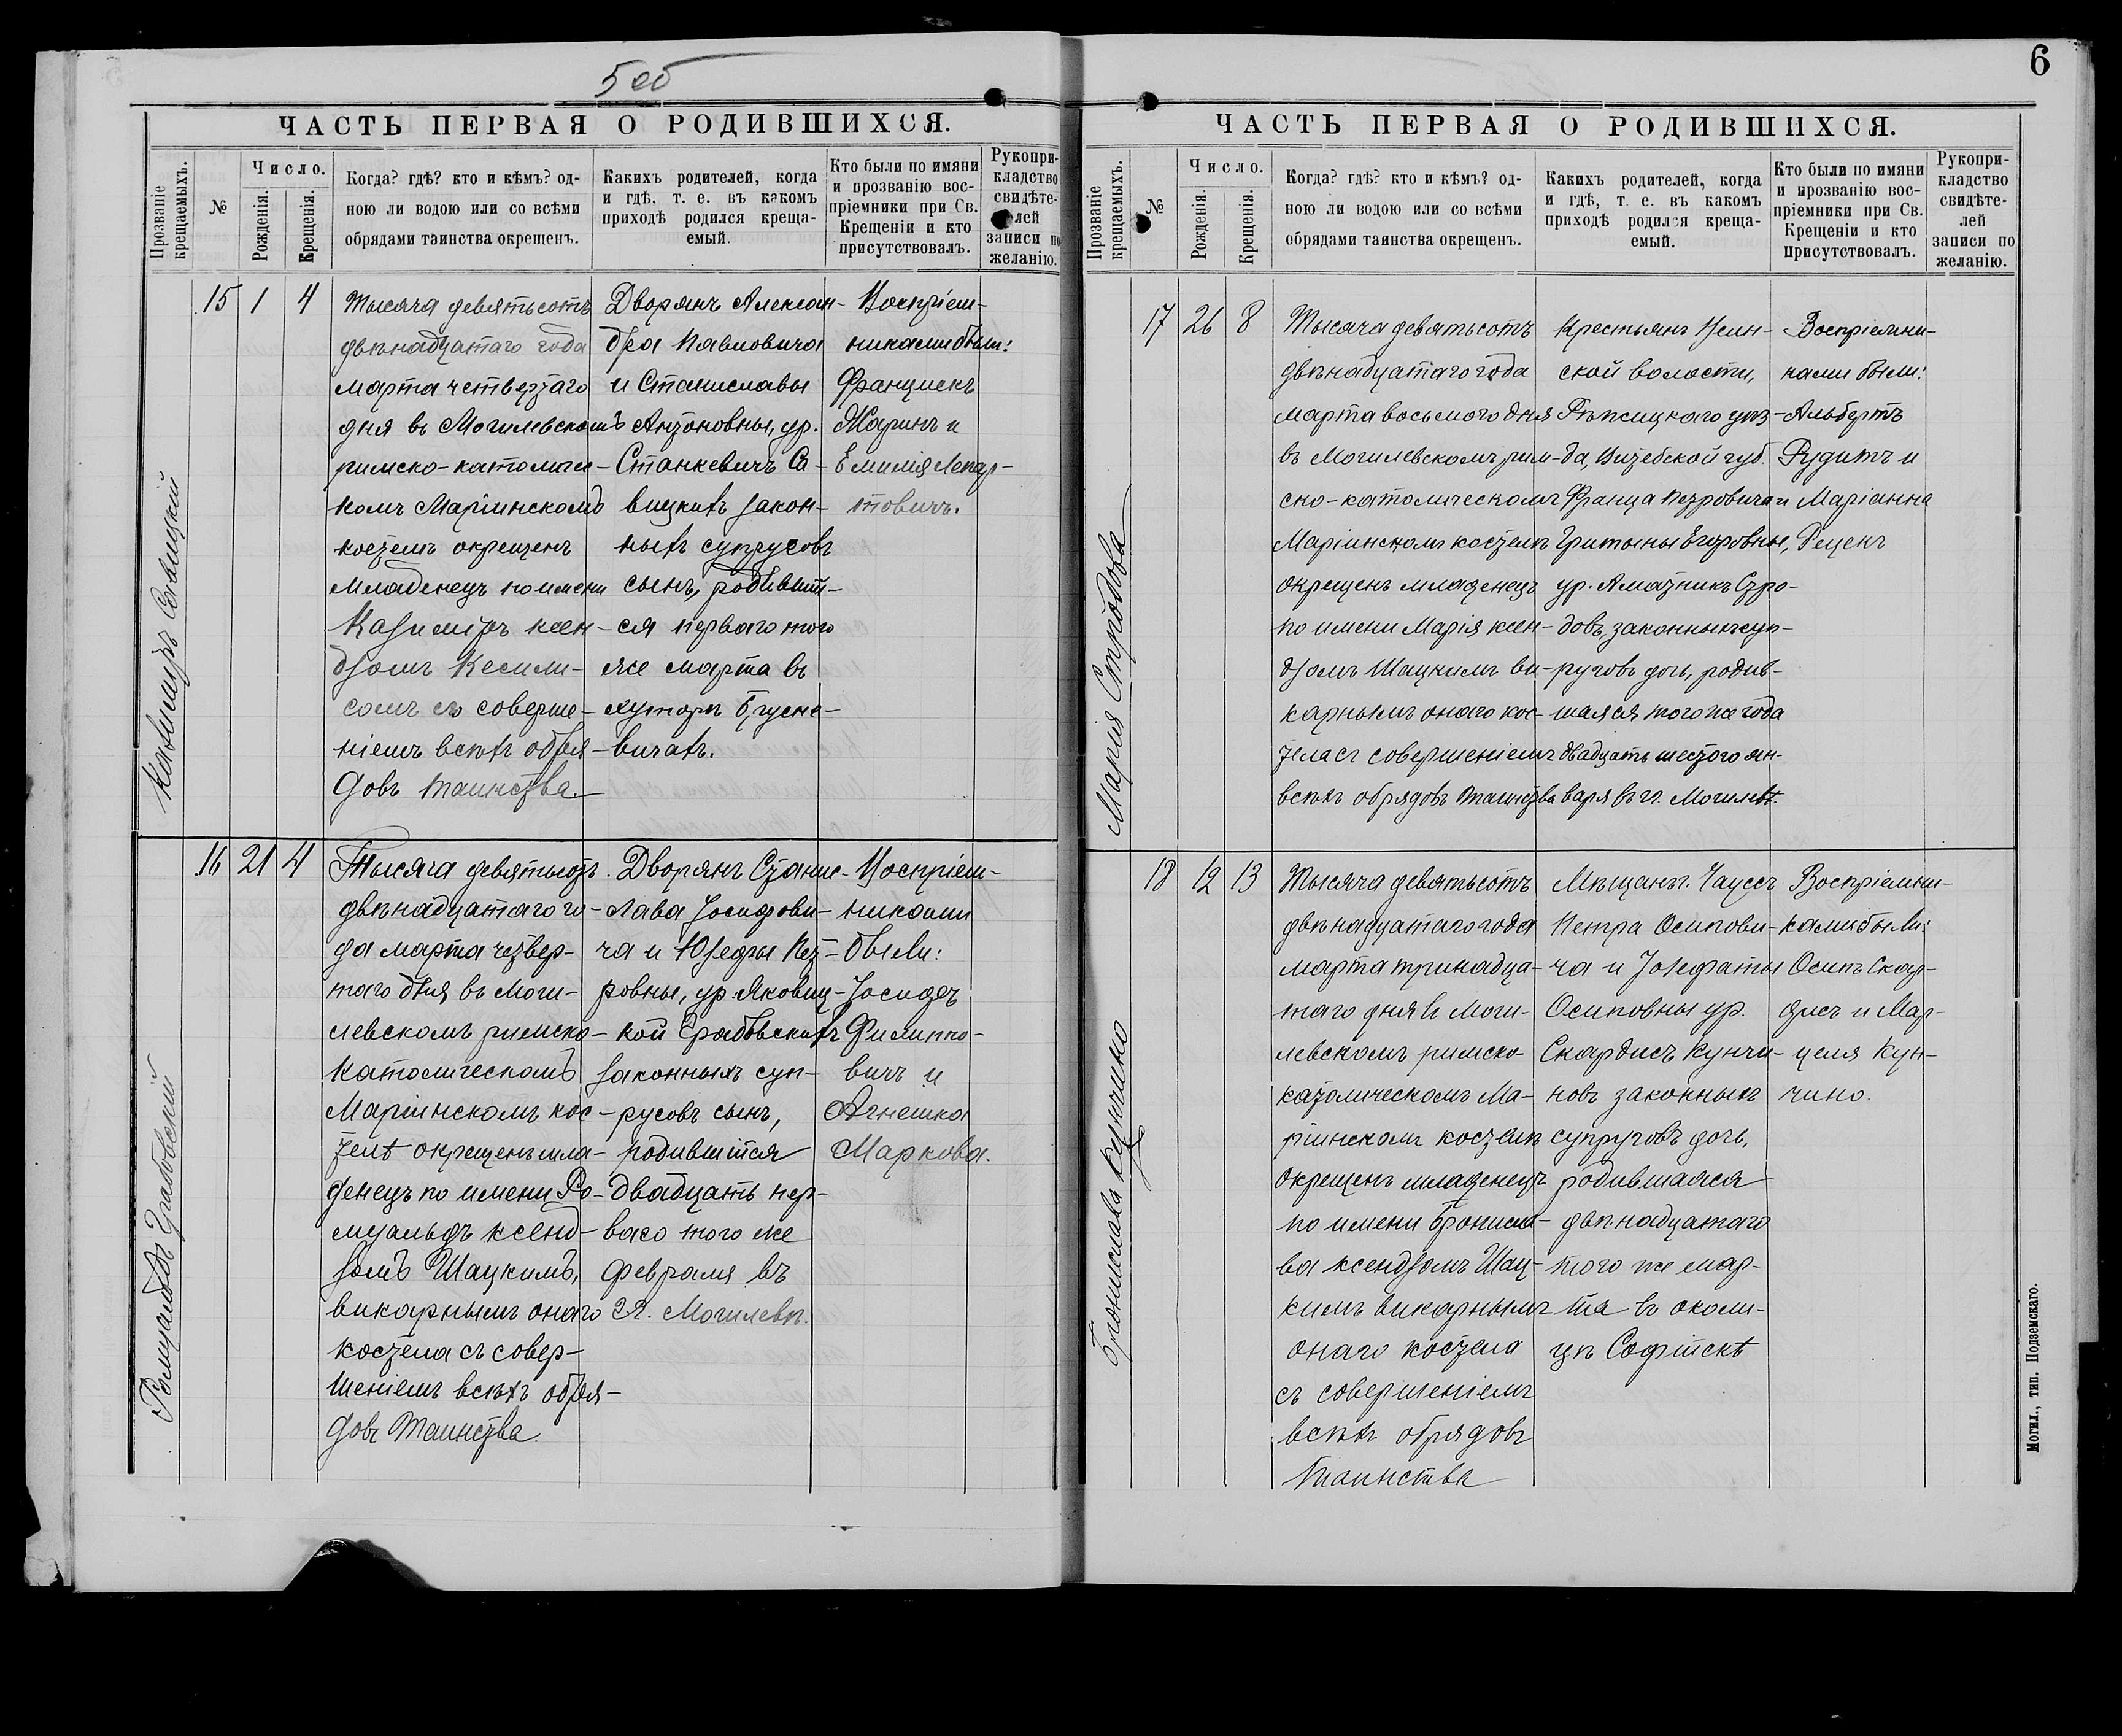 5 об
ЧАСТЬ ПЕРВАЯ О РОДИВШИХСЯ.
Прозваніе крещаемыхъ.
№
Число.
Рожденія.
Крещенія.
Когда? гдѣ? кто и кѣмъ? од-
ною ли водою или со всѣми
обрядами таинства окрещенъ.
Какихъ родителей, когда
и гдѣ, т. е. въ какомъ
приходѣ родился креща-
емый.
Кто были по имяни
и прозванію вос-
пріемники при Св.
Крещеніи и кто
присутствовалъ.
Рукопри-
кладство
свидѣте-
лей
записи по
желанію.
Казимиръ Савицкій
15
1
4
Тысяча девятьсотъ
двѣнадцатаго года
марта четвертаго
дня въ Могилевскомъ
римско-католиче-
комъ Маріинскомъ
костелѣ окрещенъ
младенецъ по имени
Казимиръ ксен-
дзомъ
сомъ съ соверше-
ніемъ всѣхъ обря-
довъ таинства
Дворянъ Алексан-
дра Павловича
и Станиславы
Антоновны, ур.
Станкевичъ Са-
вицкихъ закон-
ныхъ супруговъ
сынъ, родившій-
ся перваго того
же марта въ
хуторѣ
вичахъ.
Воспріем-
никами были:
Францискъ
Жаринъ и
Емилія Лепар-
товичъ.
Ромуальдъ Грабовскій
16
21
4
Тысяча девятьсотъ
двѣнадцатаго го-
да марта четвер-
таго дня въ Моги-
левскомъ римско-
католическомъ
Маріинскомъ кос-
телѣ окрещенъ мла-
денецъ по имени Ро-
муальдъ ксенд-
зомъ Шацкимъ,
викарнымъ онаго
костела съ совер-
шеніемъ всѣхъ обря-
довъ Таинства.
Дворянъ Станис-
лава Іосифови-
ча и Юзефы Пет-
ровны, ур. Яковиц-
кой Грабовскихъ
законныхъ суп-
русовъ сынъ,
родившійся
двадцать пер-
ваго того же
февраля въ
г. Могилевѣ.
Воспріем-
никами
были:
Іосифъ
Филиппо-
вичъ и
Агнешка
Маркова.
6
ЧАСТЬ ПЕРВАЯ О РОДИВШИХСЯ.
Прозваніе крещаемыхъ.
№
Число.
Рожденія.
Крещенія.
Когда? гдѣ? кто и кѣмъ? од-
ною ли водою или со всѣми
обрядами таинства окрещенъ.
Какихъ родителей, когда
и гдѣ, т. е. въ какомъ
приходѣ родился креща-
емый.
Кто были по имяни
и прозванію вос-
пріемники при Св.
Крещеніи и кто
присутствовалъ.
Рукопри-
кладство
свидѣте-
лей
записи по
желанію.
Марія Стродова
17
26
8
Тысяча девятьсотъ
двѣнадцатаго года
марта восьмого дня
въ Могилевскомъ рим-
ско-католическомъ
Маріинскомъ костелѣ
окрещенъ младенецъ
по имени Марія ксен-
дзомъ Шацкимъ ви-
карнымъ онаго кос-
тела съ совершеніемъ
всѣхъ обрядовъ таинства
Крестьянъ
ской волости,
Рѣжицкаго уѣз-
да, Витебской губ.
Франца Петровича и
Егоровны,
ур. Стро-
довъ, законныхъ суп-
руговъ дочь, родив-
шаяся того же года
двадцать шестого ян-
варя въ г. Могилевѣ.
Воспріемни-
ками были:
Альбертъ
Рудитъ и
Маріанна
Рецекъ
Бронислава Кунчино
18
12
13
Тысяча девятьсотъ
двѣнадцатаго года
марта тринадца-
таго дня въ Моги-
левскомъ римско-
католическомъ Ма-
ріинскомъ костелѣ
окрещенъ младенецъ
по имени Бронисла-
ва ксендзомъ Шац-
кимъ викарнымъ
онаго костела
съ совершеніемъ
всѣхъ обрядовъ
Таинства
Мѣщанъ г. Чаусъ
Петра Осипови-
ча и Іозефаты
Осиповны ур.
Скардисъ Кунчи-
новъ законныхъ
супруговъ дочь,
родившаяся
двѣнадцатаго
того же мар-
та въ околи-
цѣ Софійскѣ
Воспріемни-
ками были:
Осипъ Скар-
дисъ и Мар-
целя Кун-
чино.
Могил., тип. Подземскаго.